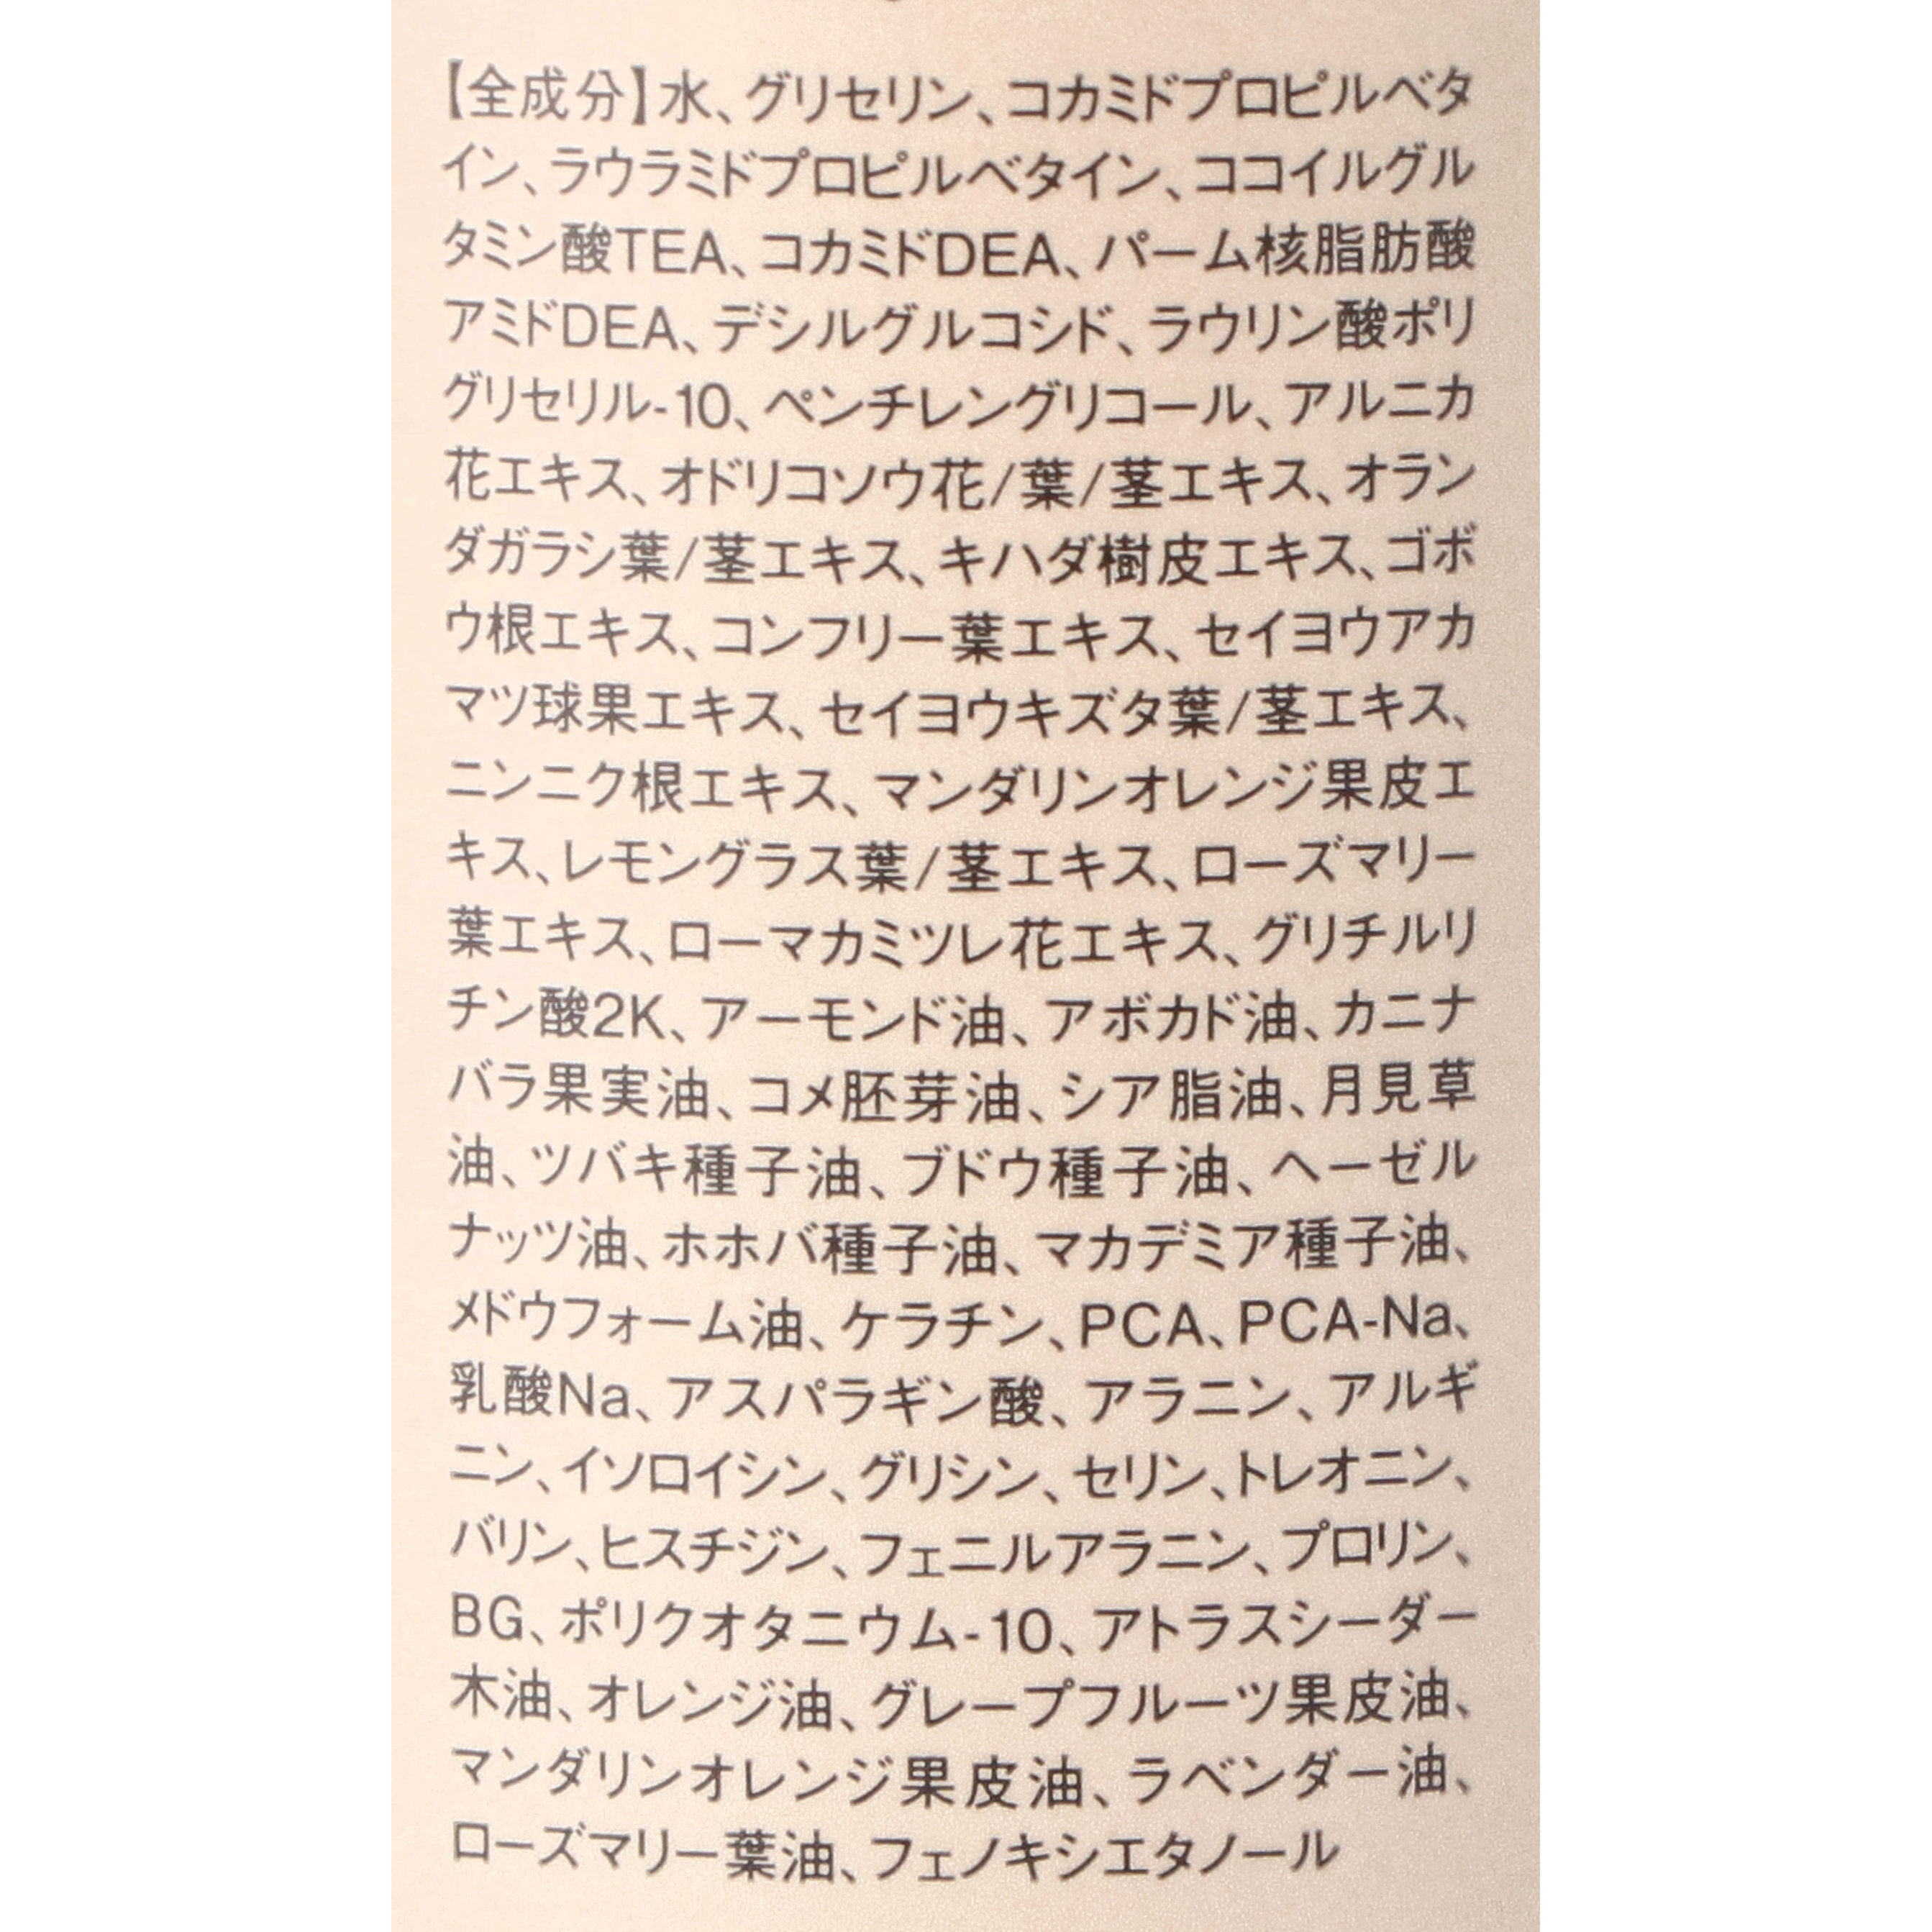 【全成分】水、グリセリン、コカミドプロピルベタ
イン、ラウラミドプロピルベタイン、ココイルグル
タミン酸TEA、コカミドDEA、パーム核脂肪酸
アミドDEA、デシルグルコシド、ラウリン酸ポリ
グリセリル-10、ペンチレングリコール、アルニカ
花エキス、オドリコソウ花/葉/茎エキス、オラン
ダガラシ葉/茎エキス、キハダ樹皮エキス、ゴボ
ウ根エキス、コンフリー葉エキス、セイヨウアカ
マツ球果エキス、セイヨウキズタ葉/茎エキス、
ニンニク根エキス、マンダリンオレンジ果皮エ
キス、レモングラス葉/茎エキス、ローズマリー
葉エキス、ローマカミツレ花エキス、グリチルリ
チン酸2K、アーモンド油、アボカド油、カニナ
バラ果実油、コメ胚芽油、シア脂油、月見草
油、ツバキ種子油、ブドウ種子油、ヘーゼル
ナッツ油、ホホバ種子油、マカデミア種子油、
メドウフォーム油、ケラチン、PCA、PCA-Na、
乳酸Na、アスパラギン酸、アラニン、アルギ
ニン、イソロイシン、グリシン、セリン、トレオニン、
バリン、ヒスチジン、フェニルアラニン、プロリン、
BG、ポリクオタニウム-10、アトラスシーダー
木油、オレンジ油、グレープフルーツ果皮油、
マンダリンオレンジ果皮油、ラベンダー油、
ローズマリー葉油、フェノキシエタノール